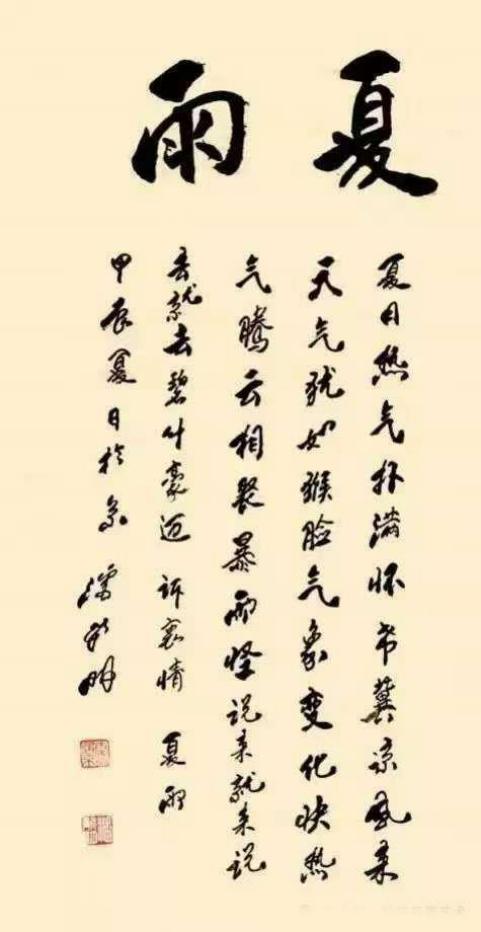 夏雨
夏日热气扑满怀希冀凉风来
天气犹如猴脸气象变化快热
气腾云相聚暴雨怪说来就来说
去就去碧豪迈诉衷情 夏雨
甲辰夏日於京